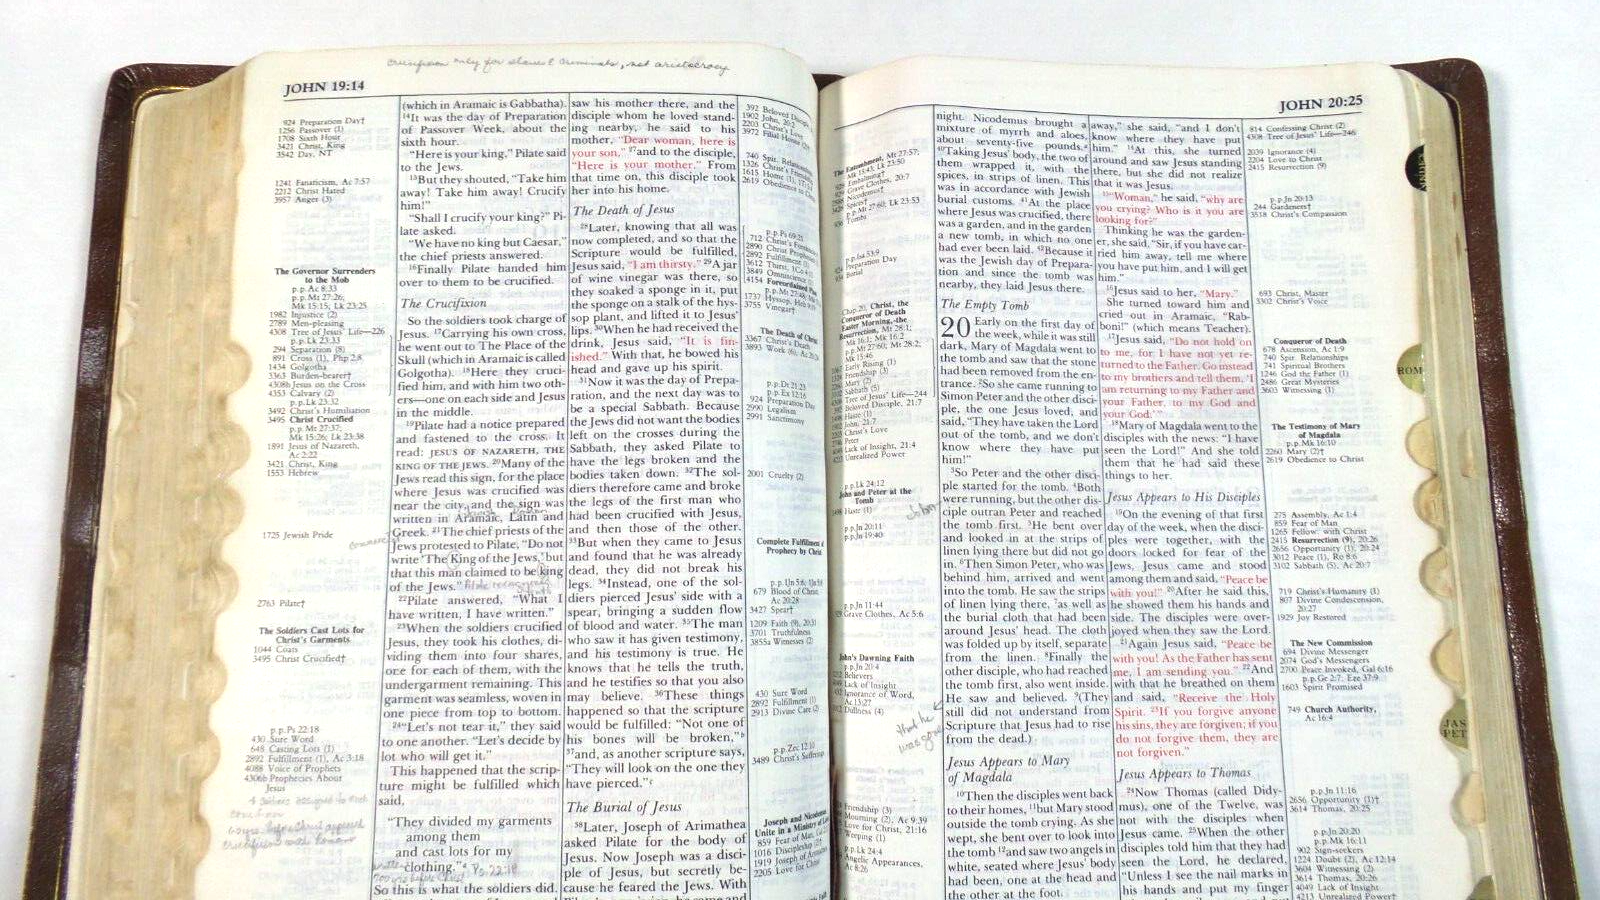 Crucifixion only for slaves & criminals, not aristocracy
JOHN 19:14
924 Preparation Day†
1256 Passover (1)
1708 Sixth Hour
3421 Christ, King
3542 Day, NT
1241 Fanaticism, Ac 7:57
2212 Christ Hated
3957 Anger (3)
The Governor Surrenders
to the Mob
p.p. Ac 8:33
p.p. Mt 27:26;
Mk 15:15; Lk 23:25
1982 Injustice (2)
2789 Men-pleasing
4308 Tree of Jesus' Life—226
p.p. Lk 23:33
294 Separation (8)
891 Cross (1), Php 2:8
1434 Golgotha
3363 Burden-bearer†
4308b Jesus on the Cross
4353 Calvary (2)
p.p. Lk 23:32
3492 Christ's Humiliation
3495 Christ Crucified
p.p. Mt 27:37;
Mk 15:26; Lk 23:38
1891 Jesus of Nazareth,
Ac 2:22
3421 Christ, King
1553 Hebrew
1725 Jewish Pride
2763 Pilate†
The Soldiers Cast Lots for
Christ's Garments
1044 Coats
3495 Christ Crucified†
p.p. Ps 22:18
430 Sure Word
648 Casting Lots (1)
2892 Fulfillment (1), Ac 3:18
4088 Voice of Prophets
4306b Prophecies About
Jesus
(which in Aramaic is Gabbatha).
14It was the day of Preparation
of Passover Week, about the
sixth hour.
"Here is your king," Pilate said
to the Jews.
15But they shouted, "Take him
away! Take him away! Crucify
him!"
"Shall I crucify your king?" Pi-
late asked.
"We have no king but Caesar,"
the chief priests answered.
16Finally Pilate handed him
over to them to be crucified.
The Crucifixion
So the soldiers took charge of
Jesus. 17Carrying his own cross,
he went out to The Place of the
Skull (which in Aramaic is called
Golgotha). 18Here they cruci-
fied him, and with him two oth-
ers—one on each side and Jesus
in the middle.
19Pilate had a notice prepared
and fastened to the cross. It
read: JESUS OF NAZARETH, THE
KING OF THE JEWS. 20Many of the
Jews read this sign, for the place
where Jesus was crucified was
near the city, and the sign was
written in Aramaic, Latin and
Greek. 21The chief priests of the
Jews protested to Pilate, "Do not
write 'The King of the Jews,' but
that this man claimed to be king
of the Jews."
22Pilate answered, "What I
have written, I have written."
23When the soldiers crucified
Jesus, they took his clothes, di-
viding them into four shares,
one for each of them, with the
undergarment remaining. This
garment was seamless, woven in
one piece from top to bottom.
24"Let's not tear it," they said
to one another. "Let's decide by
lot who will get it."
This happened that the scrip-
ture might be fulfilled which
said,
"They divided my garments
among them
and cast lots for my
clothing." Ps. 22:18
So this is what the soldiers did.
saw his mother there, and the
disciple whom he loved stand-
ing nearby, he said to his
mother, "Dear woman, here is
your son," 27and to the disciple,
"Here is your mother." From
that time on, this disciple took
her into his home.
The Death of Jesus
28Later, knowing that all was
now completed, and so that the
Scripture would be fulfilled,
Jesus said, "I am thirsty." 29A jar
of wine vinegar was there, so
they soaked a sponge in it, put
the sponge on a stalk of the hys-
sop plant, and lifted it to Jesus'
lips. 30When he had received the
drink, Jesus said, "It is fin-
ished." With that, he bowed his
head and gave up his spirit.
31Now it was the day of Prepa-
ration, and the next day was to
be a special Sabbath. Because
the Jews did not want the bodies
left on the crosses during the
Sabbath, they asked Pilate to
have the legs broken and the
bodies taken down. 32The sol-
diers therefore came and broke
the legs of the first man who
had been crucified with Jesus,
and then those of the other.
33But when they came to Jesus
and found that he was already
dead, they did not break his
legs. 34Instead, one of the sol-
diers pierced Jesus' side with a
spear, bringing a sudden flow
of blood and water. 35The man
who saw it has given testimony,
and his testimony is true. He
knows that he tells the truth,
and he testifies so that you also
may believe. 36These things
happened so that the scripture
would be fulfilled: "Not one of
his bones will be broken,"b
37and, as another scripture says,
"They will look on the one they
have pierced."c
The Burial of Jesus
38Later, Joseph of Arimathea
asked Pilate for the body of
Jesus. Now Joseph was a disci-
ple of Jesus, but secretly be-
cause he feared the Jews. With
392 Beloved
1902 John, 20:2
2203 Christ's Love
3972 Filial Honor
740 Spir.
1326 Christ's
1615 Home (1)
2619 Obedience
p.p. Ps 69:21
712 Christ's
2890 Christ
2892 Fulfillment
3612 Thirst
3849 Omniscience
4154 Foreordained
1737 Hyssop
3755 Vinegar†
The Death of Christ
3367 Christ's Death
3893 Work (6)
p.p. Dt 21:23
p.p. Ex 12:16
924 Preparation Day
2990 Legalism
2991 Sanctimony
2001 Cruelty (2)
Complete Fulfillment
Prophecy by Christ
679 Blood of Christ
Ac 20:28
3427 Spear†
1209 Faith (9), 20:31
3701 Truthfulness
3855a Witnesses (2)
430 Sure Word
2892 Fulfillment (1)
2913 Divine Care (2)
p.p. Zec 12:10
3489 Christ's
Joseph and
Unite in a Ministry
859 Fear of Man
1016 Discipleship
1919 Joseph of
2205 Love for
JOHN 20:25
The Entombment, Mt 27:57;
Mk 15:43; Lk 23:50
Embalming†
Grave Clothes, 20:7
Nicodemus†
Spices†
p.p. Mt 27:60; Lk 23:53
Tombs
p.p. Isa 53:9
Preparation Day
Burial
Chap. 20, Christ, the
Conqueror of Death
Easter Morning, the
Resurrection, Mt 28:1;
Mk 16:1; Mk 16:2
p.p. Mt 27:60; Mt 28:2;
Mk 15:46
Early Rising (1)
Friendship (3)
Mary (2)
Sabbath (5)
Tree of Jesus' Life—244
Beloved Disciple, 21:7
Haste (1)
John, 21:7
Christ's Love
Peter
Lack of Insight, 21:4
Unrealized Power
p.p. Lk 24:12
John and Peter at the
Tomb
Haste (1)
p.p. Jn 20:11
p.p. Jn 19:40
p.p. Jn 11:44
Grave Clothes, Ac 5:6
John's Dawning Faith
p.p. Jn 20:4
Believers
Lack of Insight
Ignorance of Word,
Ac 13:27
Dullness (4)
that he
was gone
Friendship (3)
Mourning (2), Ac 9:39
Love for Christ, 21:16
Weeping (1)
p.p. Lk 24:4
Angelic Appearances,
Ac 8:26
night. Nicodemus brought a
mixture of myrrh and aloes,
about seventy-five pounds.
40Taking Jesus' body, the two of
them wrapped it, with the
spices, in strips of linen. This
was in accordance with Jewish
burial customs. 41At the place
where Jesus was crucified, there
was a garden, and in the garden
a new tomb, in which no one
had ever been laid. 42Because it
was the Jewish day of Prepara-
tion and since the tomb was
nearby, they laid Jesus there.
The Empty Tomb
20 Early on the first day of
the week, while it was still
dark, Mary of Magdala went to
the tomb and saw that the stone
had been removed from the en-
trance. 2So she came running to
Simon Peter and the other disci-
ple, the one Jesus loved, and
said, "They have taken the Lord
out of the tomb, and we don't
know where they have put
him!"
3So Peter and the other disci-
ple started for the tomb. 4Both
were running, but the other dis-
ciple outran Peter and reached
the tomb first. 5He bent over
and looked in at the strips of
linen lying there but did not go
in. 6Then Simon Peter, who was
behind him, arrived and went
into the tomb. He saw the strips
of linen lying there, 7as well as
the burial cloth that had been
around Jesus' head. The cloth
was folded up by itself, separate
from the linen. 8Finally the
other disciple, who had reached
the tomb first, also went inside.
He saw and believed. 9(They
still did not understand from
Scripture that Jesus had to rise
from the dead.)
Jesus Appears to Mary
of Magdala
10Then the disciples went back
to their homes, 11but Mary stood
outside the tomb crying. As she
wept, she bent over to look into
the tomb 12and saw two angels in
white, seated where Jesus' body
had been, one at the head and
the other at the foot.
away," she said, "and I don't
know where they have put
him." 14At this, she turned
around and saw Jesus standing
there, but she did not realize
that it was Jesus.
15"Woman," he said, "why are
you crying? Who is it you are
looking for?"
Thinking he was the garden-
er, she said, "Sir, if you have car-
ried him away, tell me where
you have put him, and I will get
him."
16Jesus said to her, "Mary."
She turned toward him and
cried out in Aramaic, "Rab-
boni!" (which means Teacher).
17Jesus said, "Do not hold on
to me, for I have not yet re-
turned to the Father. Go instead
to my brothers and tell them, 'I
am returning to my Father and
your Father, to my God and
your God.'"
18Mary of Magdala went to the
disciples with the news: "I have
seen the Lord!" And she told
them that he had said these
things to her.
Jesus Appears to His Disciples
19On the evening of that first
day of the week, when the disci-
ples were together, with the
doors locked for fear of the
Jews, Jesus came and stood
among them and said, "Peace be
with you!" 20After he said this,
he showed them his hands and
side. The disciples were over-
joyed when they saw the Lord.
21Again Jesus said, "Peace be
with you! As the Father has sent
me, I am sending you." 22And
with that he breathed on them
and said, "Receive the Holy
Spirit. 23If you forgive anyone
his sins, they are forgiven; if you
do not forgive them, they are
not forgiven."
Jesus Appears to Thomas
24Now Thomas (called Didy-
mus), one of the Twelve, was
not with the disciples when
Jesus came. 25When the other
disciples told him that they had
seen the Lord, he declared,
"Unless I see the nail marks in
his hands and put my finger
814 Confessing Christ (2)
4308 Tree of Jesus' Life—246
2039 Ignorance (4)
2204 Love to Christ
2415 Resurrection (9)
p.p. Jn 20:13
244 Gardeners†
3518 Christ's Compassion
693 Christ, Master
3302 Christ's Voice
Conqueror of Death
678 Ascension, Ac 1:9
740 Spir. Relationships
741 Spiritual Brothers
1246 God the Father (1)
2486 Great Mysteries
3603 Witnessing (1)
The Testimony of Mary
of Magdala
p.p. Mk 16:10
2260 Mary (2)†
2619 Obedience to Christ
275 Assembly, Ac 1:4
859 Fear of Man
1265 Fellow. with Christ
2415 Resurrection (9), 20:26
2656 Opportunity (1), 20:24
3012 Peace (1), Ro 8:6
3102 Sabbath (5), Ac 20:7
719 Christ's Humanity (1)
807 Divine Condescension,
20:27
1929 Joy Restored
The New Commission
694 Divine Messenger
2074 God's Messengers
2700 Peace Invoked, Gal 6:16
p.p. Ge 2:7; Eze 37:9
1603 Spirit Promised
749 Church Authority,
Ac 16:4
p.p. Jn 11:16
2656 Opportunity (1)†
3614 Thomas, 20:25
p.p. Jn 20:20
p.p. Mk 16:11
902 Sign-seekers
1224 Doubt (2), Ac 12:14
3604 Witnessing (2)
3614 Thomas, 20:26
4049 Lack of Insight
4213 Unrealized Power†
ROM
JAS
PET